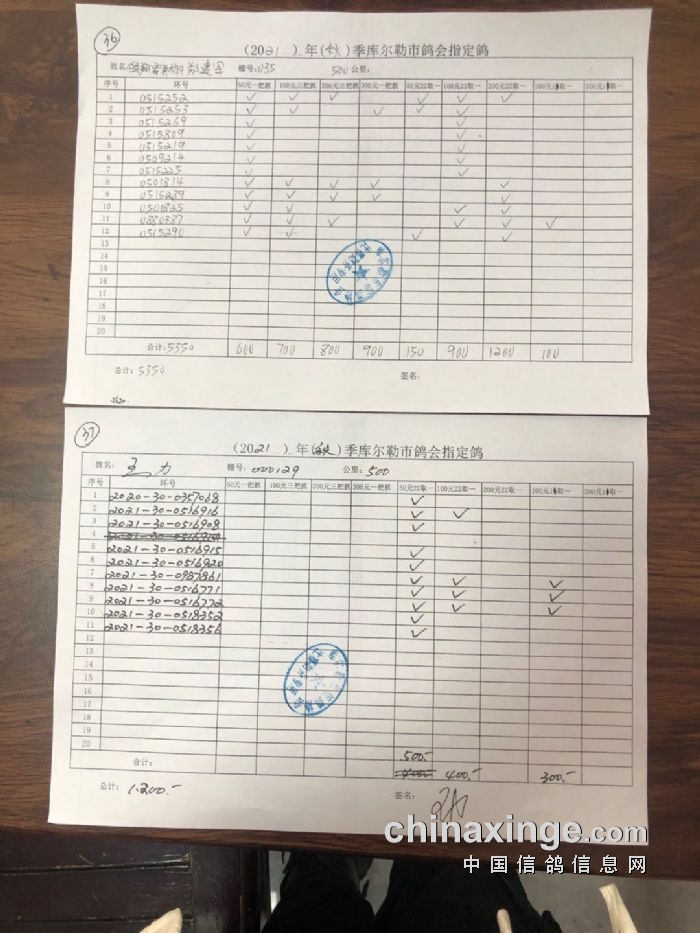 36
(2021 )年(秋)季库尔勒市鸽会指定鸽
姓名: 棚号:035 500公里:
序号 环号 50元一把抓 100元三把抓 200元三把抓 300元一把抓 50元22取一 100元22取一 200元22取一 100元1取一 200元1取一
1 0515252 ✓ ✓ ✓ ✓ ✓ ✓
2 0515253 ✓ ✓ ✓ ✓ ✓
3 0515269 ✓ ✓
4 0515809 ✓ ✓
5 0515219 ✓ ✓
6 0509214 ✓ ✓
7 0515225 ✓ ✓
8 0501814 ✓ ✓ ✓ ✓ ✓
9 0515289 ✓ ✓ ✓ ✓ ✓
10 0501825 ✓ ✓ ✓ ✓
11 0880387 ✓ ✓ ✓ ✓ ✓ ✓
12 0515290 ✓ ✓ ✓ ✓
13
14
15
16
17
18
19
20
合计:5350 600 700 800 900 150 900 1200 100
总计:5350 签名:
37
(2021 )年(秋)季库尔勒市鸽会指定鸽
姓名: 王力 棚号: 000129 公里: 500
序号 环号 50元一把抓 100元三把抓 200元三把抓 300元一把抓 50元22取一 100元22取一 200元22取一 100元1取一 200元1取一
1 2020-30-0357068 ✓
2 2021-30-0516916 ✓ ✓
3 2021-30-0516908 ✓
4
5 2021-30-0516915 ✓
6 2021-30-0516920 ✓
7 2021-30-0987861 ✓
8 2021-30-0516771 ✓ ✓ ✓
9 2021-30-0516772 ✓ ✓ ✓
10 2021-30-0518352 ✓ ✓ ✓
11 2021-30-0518356 ✓
12 ✓
13
14
15
16
17
18
19
20
合计: 500.- 400.- 400.- 300.-
总计: 1.200.- 签名:
chinaxinge.com
中国信鸽信息网